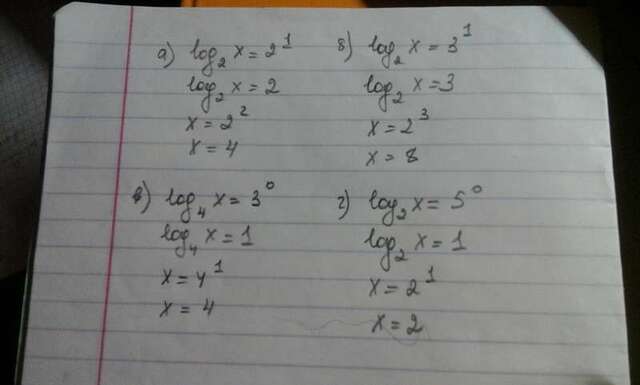 а) log₂ x = 2¹
log₂ x = 2
x = 2²
x = 4
б) log₂ x = 3¹
log₂ x = 3
x = 2³
x = 8
в) log₄ x = 3⁰
log₄ x = 1
x = 4¹
x = 4
г) log₂ x = 5⁰
log₂ x = 1
x = 2¹
x = 2